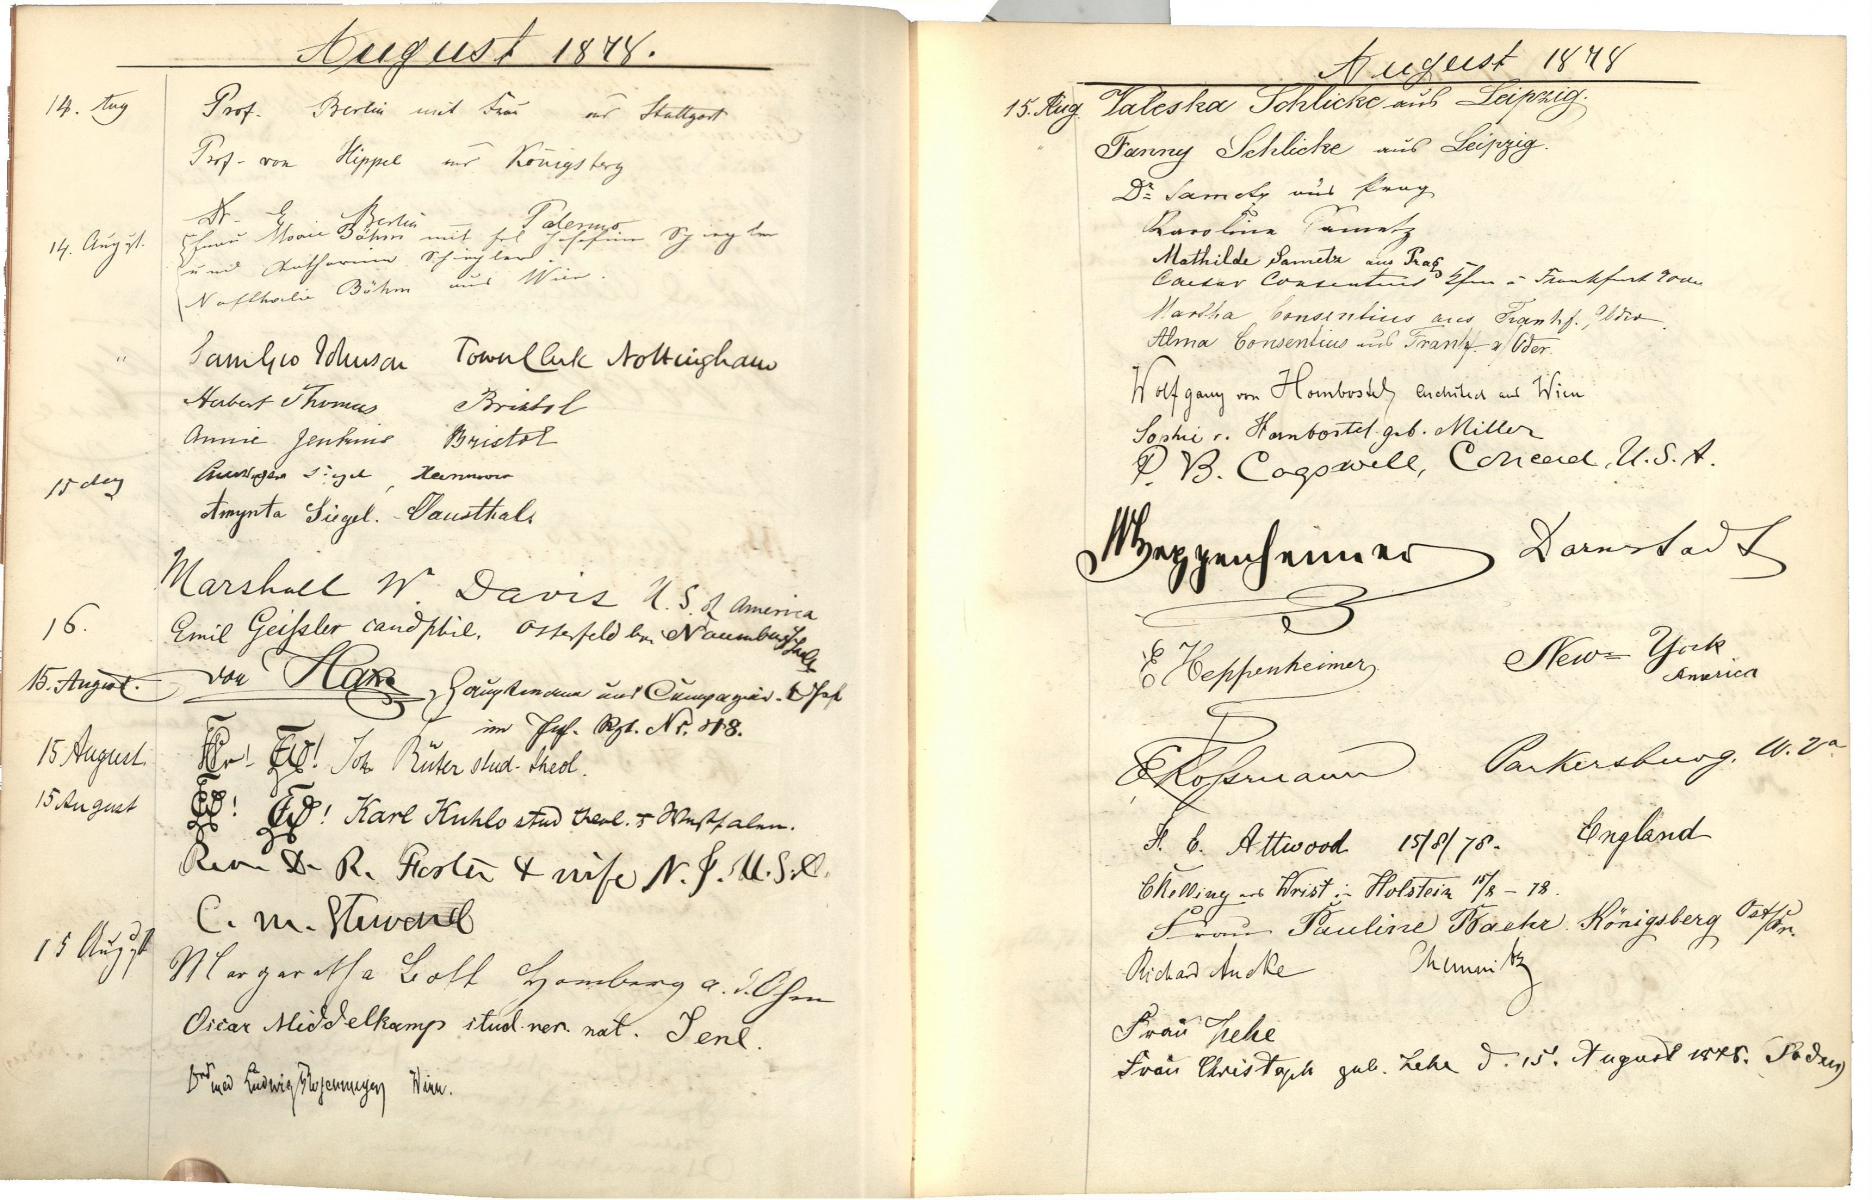 August 1878.
14. Aug Prof. Berlin mit Frau aus Stuttgart
Prof. von Hippel aus Königsberg
Dr. E. Berlin Palermo
14. August. Frau Marie Böhm mit
und Katharina
Nathalie Böhm aus Wien.
" Saml Geo Johnson Town Clerk Nottingham
Herbert Thomas Bristol
Annie Jenkins Bristol
15 Aug Siegel, Hannover
Amynta Siegel. Clausthal.
Marshall W. Davis U. S. of America
16. Emil Geißler cand phil. Osterfeld bei Naumburg
15. August. von Hauptmann und Compagnie-Chef
im Inf. Rgt. Nr.
15 August. Joh. Rüter stud. theol.
15 August Karl Kuhlo stud theol. Westfalen.
Rev. Dr. R. & wife N. J. U.S.A.
C. M.
15 August Margaretha Homberg a. d. Ohm
Oscar Middelkamp stud. rer. nat. Jena.
med Ludwig Wien.
August 1878
15. Aug. Valeska Schlicke aus Leipzig.
Fanny Schlicke aus Leipzig.
Dr. Sametz aus Prag
Karoline Sametz
Mathilde Sametz aus Prag
Caesar Consentius Frankfurt Oder
Martha Consentius aus Frankf. a/Oder.
Alma Consentius aus Frankf. a/Oder.
Wolfgang von Hornbostel, Architect aus Wien
Sophie v. Hornbostel geb. Miller
P. B. Cogswell, Concord, U.S.A.
Heppenheimer Darmstadt
E Heppenheimer New York
America
Parkersburg, W. Va
Attwood 15/8/78. England
Wrist in Holstein 15/8 – 78.
Frau Pauline Baehr Königsberg Ost/Pr.
Richard Ancke Chemnitz
Frau Zehe
Frau Christoph geb. Zehe d. 15. August 1878.